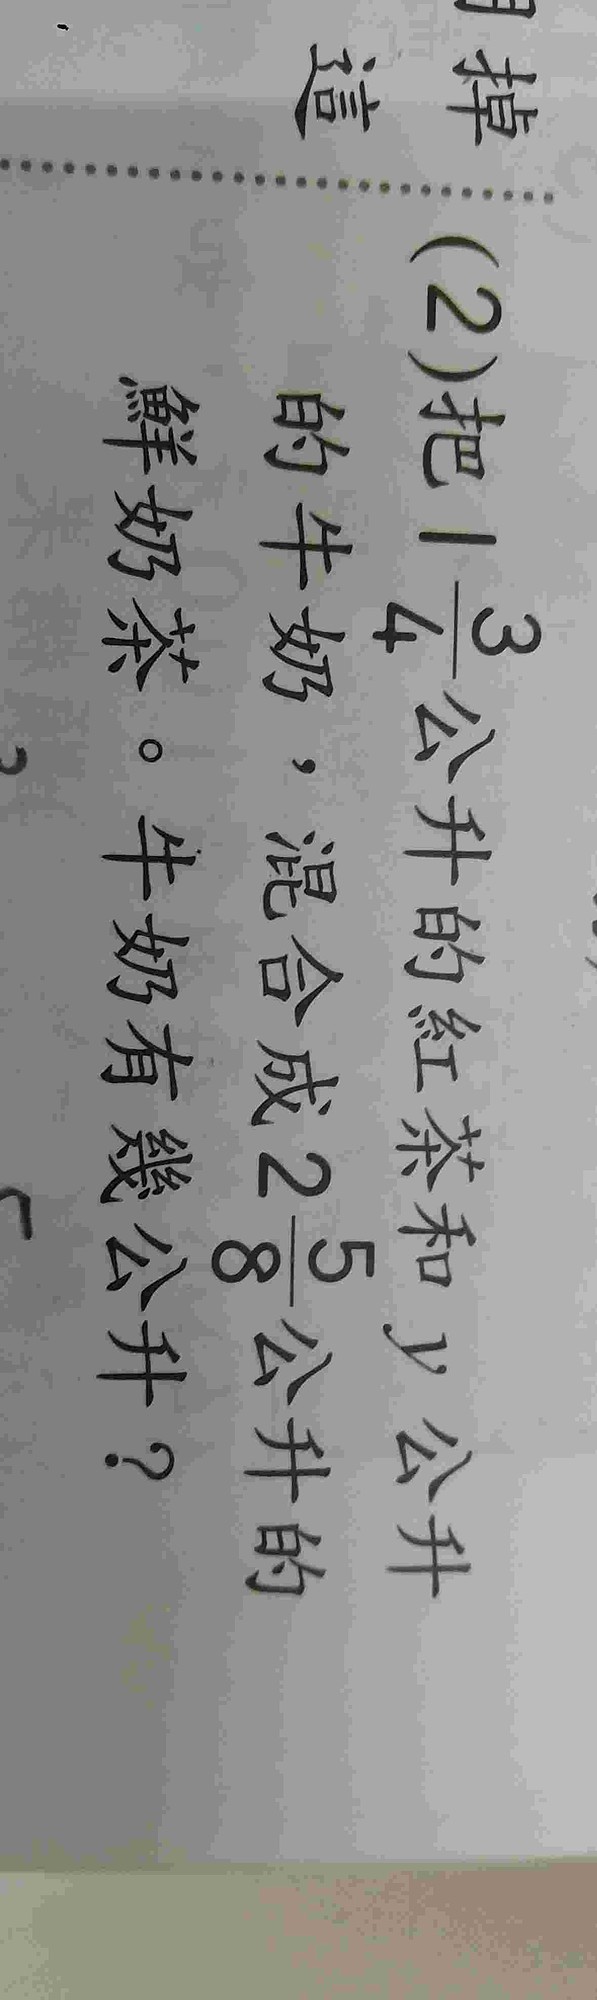 掉
這
(2)把1 3/4公升的紅茶和y公升
的牛奶，混合成2 5/8公升的
鮮奶茶。牛奶有幾公升？